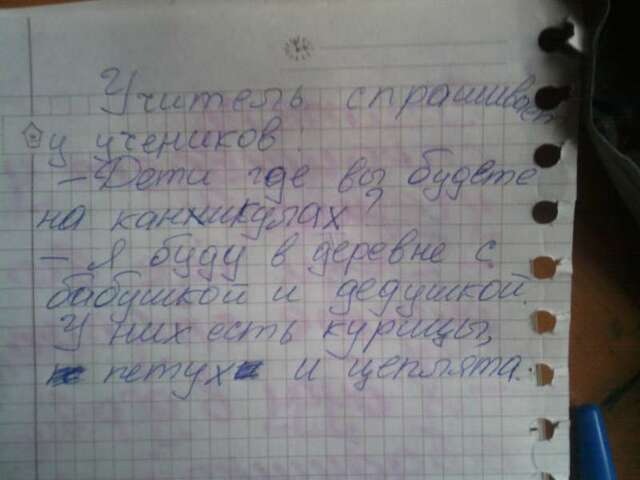 Учитель спрашивает
у учеников:
– Дети где вы будете
на канхикулах?
– Я буду в деревне с
бабушкой и дедушкой.
У них есть курицы,
петух и цеплята.